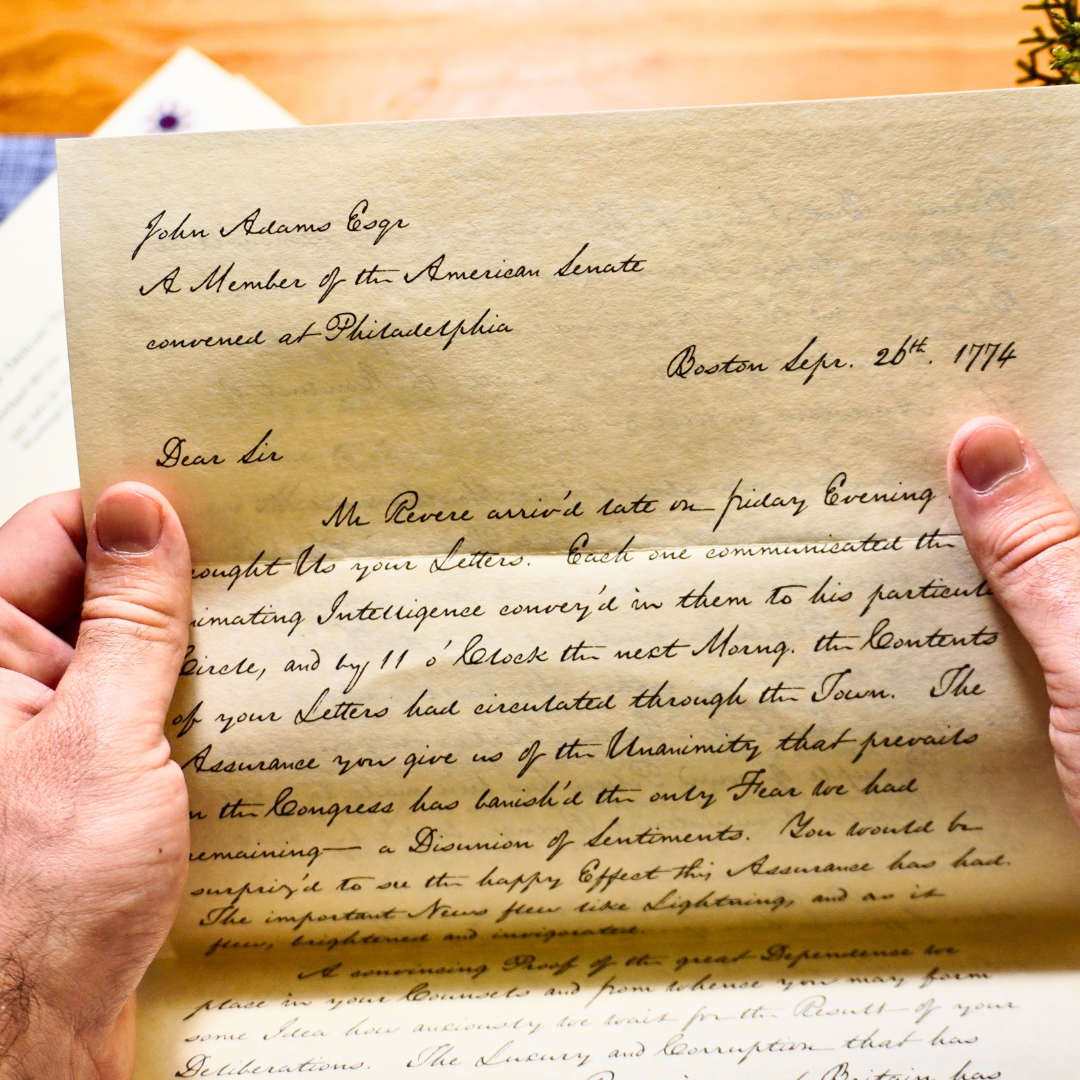 John Adams Esqr
A Member of the American Senate
convened at Philadelphia
Boston Sepr. 26th. 1774
Dear Sir
Mr Revere arriv'd late on friday Evening
ought Us your Letters. Each one communicated the
imating Intelligence convey'd in them to his particul
Circle, and by 11 o'Clock the next Morng. the Contents
of your Letters had circulated through the Town. The
Assurance you give us of the Unanimity that prevails
n the Congress has banish'd the only Fear we had
remaining— a Disunion of Sentiments. You would be
surpriz'd to see the happy Effect this Assurance has had.
The important News flew like Lightning, and as it
flew, brightened and invigorated.
A convincing Proof of the great Dependence we
place in your Counsels and from whence you may form
some Idea how anxiously we wait for the Result of your
Deliberations. The Luxury and Corruption that has
Britain has